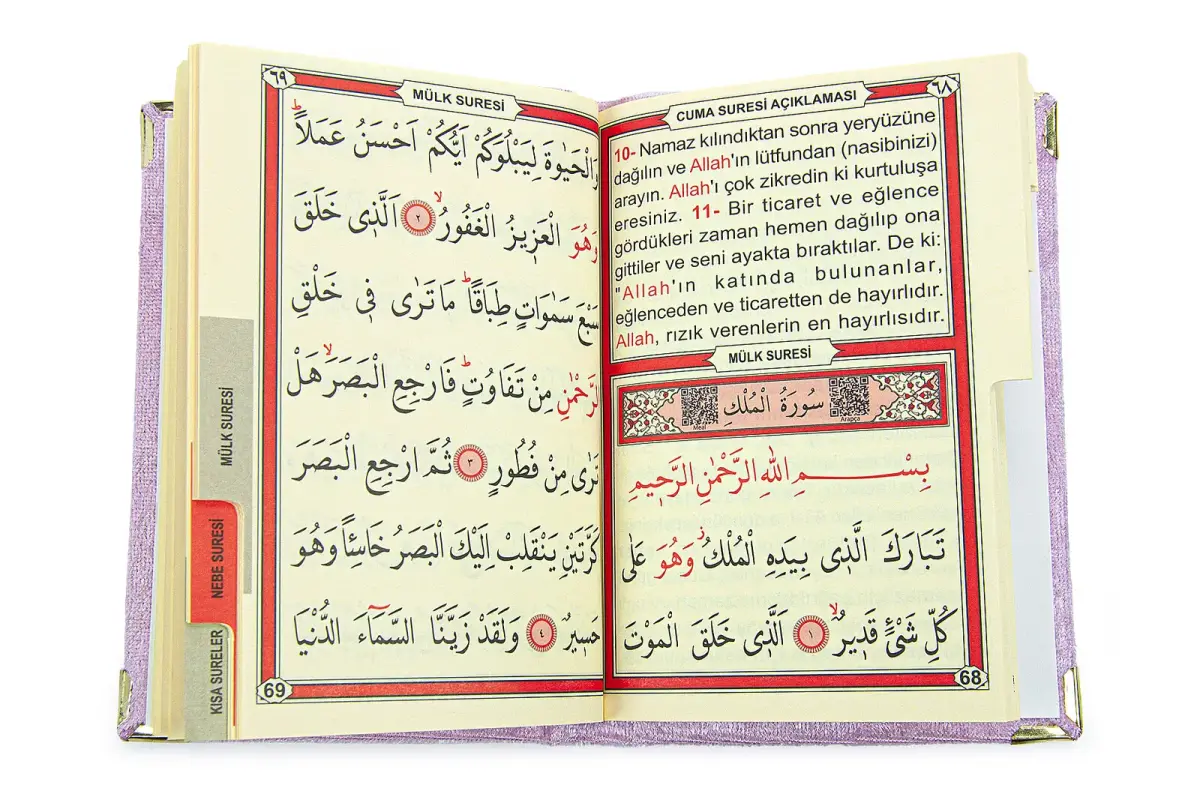 ٦٨
CUMA SURESİ AÇIKLAMASI
10- Namaz kılındıktan sonra yeryüzüne
dağılın ve Allah'ın lütfundan (nasibinizi)
arayın. Allah'ı çok zikredin ki kurtuluşa
eresiniz. 11- Bir ticaret ve eğlence
gördükleri zaman hemen dağılıp ona
gittiler ve seni ayakta bıraktılar. De ki:
"Allah'ın katında bulunanlar,
eğlenceden ve ticaretten de hayırlıdır.
Allah, rızık verenlerin en hayırlısıdır.
MÜLK SURESİ
سُورَةُ الْمُلْكِ
Meal
Arapça
بِسْمِ اللّٰهِ الرَّحْمٰنِ الرَّحٖيمِ
تَبَارَكَ الَّذٖى بِيَدِهِ الْمُلْكُ وَهُوَ عَلٰى
كُلِّ شَىْءٍ قَدٖيرٌ ١ اَلَّذٖى خَلَقَ الْمَوْتَ
68
٦٩
MÜLK SURESİ
وَالْحَيٰوةَ لِيَبْلُوَكُمْ اَيُّكُمْ اَحْسَنُ عَمَلاً
وَهُوَ الْعَزٖيزُ الْغَفُورُ ٢ اَلَّذٖى خَلَقَ
سَبْعَ سَمٰوَاتٍ طِبَاقًا مَا تَرٰى فٖى خَلْقِ
الرَّحْمٰنِ مِنْ تَفَاوُتٍ فَارْجِعِ الْبَصَرَ هَلْ
تَرٰى مِنْ فُطُورٍ ٣ ثُمَّ ارْجِعِ الْبَصَرَ
كَرَّتَيْنِ يَنْقَلِبْ اِلَيْكَ الْبَصَرُ خَاسِئًا وَهُوَ
حَسٖيرٌ ٤ وَلَقَدْ زَيَّنَّا السَّمَاءَ الدُّنْيَا
69
MÜLK SURESİ
NEBE SURESİ
KISA SURELER